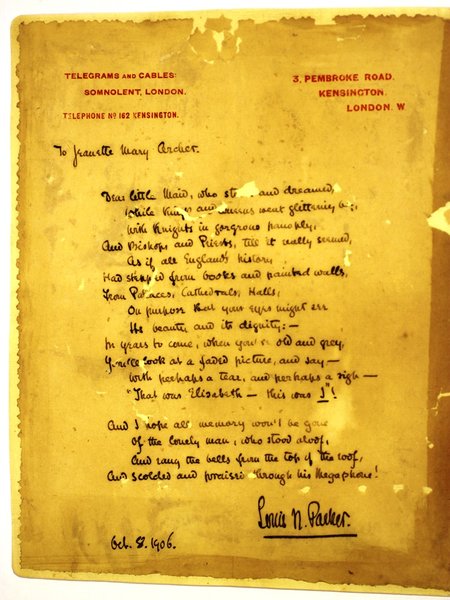 TELEGRAMS AND CABLES:
SOMNOLENT, LONDON.
TELEPHONE Nº 162 KENSINGTON.
3, PEMBROKE ROAD,
KENSINGTON,
LONDON. W
To Jeanette Mary Archer.
Dear little Maid, who and dreamed,
While Kings and Queens went glittering by,
With Knights in gorgeous panoply,
And Bishops and Priests, till it really seemed,
As if all England's history
Had stepped from books and painted walls,
From Palaces, Cathedrals, Halls,
On purpose that your eyes might see
Its beauty and its dignity:—
In years to come, when you're old and grey,
You'll look at a faded picture, and say—
With perhaps a tear, and perhaps a sigh—
"That was Elizabeth — this was I"!
And I hope all memory won't be gone
Of the lonely man, who stood aloof,
And rang the bells from the top of the roof,
And scolded and praised through his Megaphone!
Louis N. Parker.
Oct. 8. 1906.